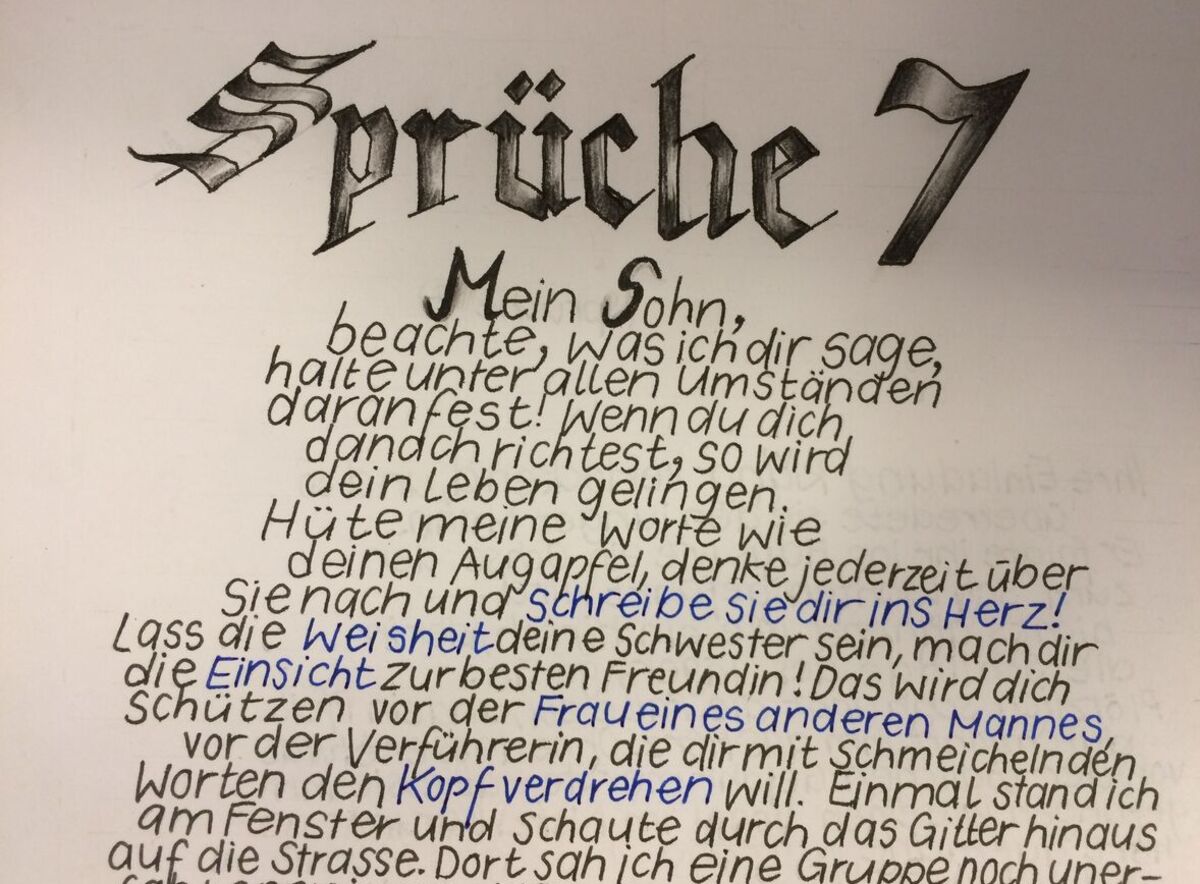 Sprüche 7
Mein Sohn,
beachte, was ich dir sage,
halte unter allen Umständen
daran fest! Wenn du dich
danach richtest, so wird
dein Leben gelingen.
Hüte meine Worte wie
deinen Augapfel, denke jederzeit über
Sie nach und schreibe sie dir ins Herz!
Lass die Weisheit deine Schwester sein, mach dir
die Einsicht zur besten Freundin! Das wird dich
Schützen vor der Frau eines anderen Mannes,
vor der Verführerin, die dir mit Schmeichelnden
Worten den Kopf verdrehen will. Einmal stand ich
am Fenster und schaute durch das Gitter hinaus
auf die Strasse. Dort sah ich eine Gruppe noch uner-